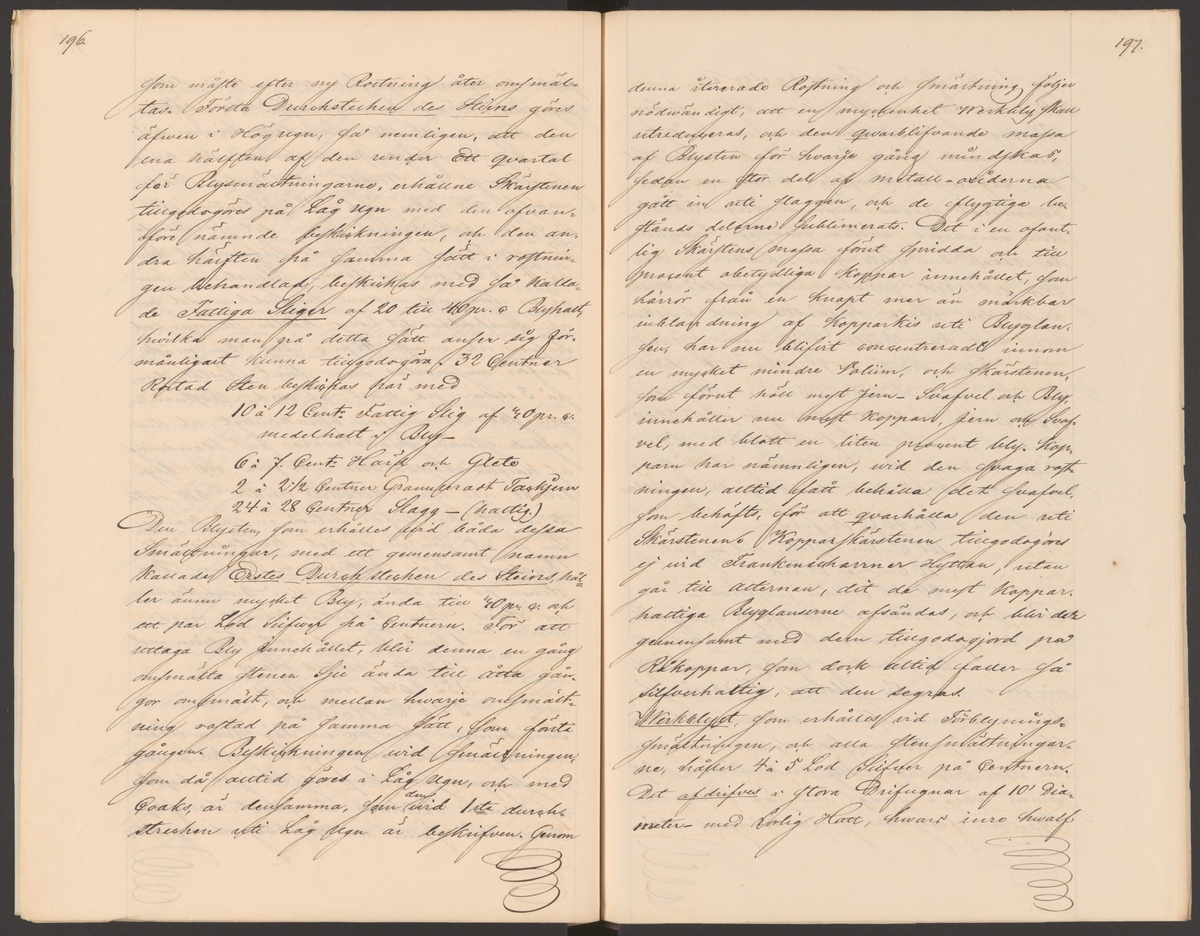 196.
som måste efter ny Rostning åter omsmäl-
tas. Första Durchstechen des Steins göres
äfwen i Högugn, så nemligen, att den
ena hälften af den under Ett qvartal
för Blysmältningarne, erhållne Skärstenen
tillgodogöres på Låg Ugn med den ofvan-
före nämnde beskickningen, och den an-
dra hälften på samma sätt i rostnin-
gen behandlad, beskickas med så kalla-
de Fattiga Sliger af 20 till 40 pr. c. Blyhalt,
hwilka man på detta sätt anser sig för-
månligast kunna tillgodogöra. 32 Centner
Rostad Sten beskickas här med
10 à 12 Cent: Fattig Slig af 40 pr. c.
medelhalt i Bly—
6 à 7 Cent: Härd och Glete
2 à 2 1/2 Centner Granuleradt Tackjern
24 à 28 Centner Slagg — (haltig.)
Den Blysten, som erhålles wid båda dessa
Smältningar, med ett gemensamt namn
kallade Erstes Durchstechen des Steins, hål-
ler ännu mycket Bly, ända till 40 pr. c. och
ett par Lod Silfwer på Centnern. För att
uttaga Bly innehållet, blir denna en gång
omsmälta Stenen Sju ända till åtta gån-
gor omsmält, och mellan hwarje omsmält-
ning rostad på samma sätt, som första
gången. Beskickningen wid smältningen,
som då alltid göres i Låg Ugn, och med
Coaks, är densamma, som den wid 1sta durch-
strechen uti Låg Ugn är beskrifven. Genom
197.
denna itererade Rostning och smältning, följer
nödwändigt, att en myckenhet Werkbly skall
utreduceras, och den qwarblifvande massa
af Blysten för hwarje gång mindskas,
sedan en stor del af metall-oxiderna
gått in uti slaggen, och de flygtiga be-
stånds delarne sublimerats. Det i en ofant-
lig Skärstens massa förut spridda och till
procent obetydliga Koppar innehållet, som
härrör från en knapt mer än märkbar
inblandning af Kopparkis uti Blyglan-
sen, har nu blifvit concentreradt innom
en mycket mindre Volum, och Skärstenen,
som förut höll mest Jern- Svafvel och Bly,
innehåller nu mest Koppar, Jern och Svaf-
vel, med blott en liten procent bly. Kop-
parn har nämnligen, wid den svaga rost-
ningen, alltid fått behålla det svafvel,
som behöfts, för att qvarhålla den uti
Skärstenen. Kopparskärstenen tillgodogöres
ej wid Frankenscharner Hyttan, utan
går till Altenau, dit de mest koppar-
haltiga Blyglanserne afsändas, och blir der
gemensamt med dem tillgodogjord på
Råkoppar, som dock alltid faller så
silfverhaltig, att den segras.
Werkblyet, som erhålles wid Förblynings-
smältningen, och alla Stensmältningar-
ne, håller 4 à 5 Lod Silfver på Centnern.
Det afdrifves i stora Drifugnar af 10' Dia-
meter— med rörlig Hatt, hwars inre hwalf